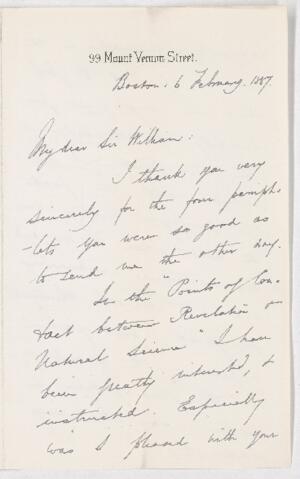 99 Mount Vernon Street.
Boston: 6 February. 1887.
My dear Sir William:
I thank you very
sincerely for the four pamph-
-lets you were so good as
to send me the other day.
In the "Points of Con-
tact between Revelation &
Natural Science" I have
been greatly interested, &
instructed. Especially
was I pleased with your